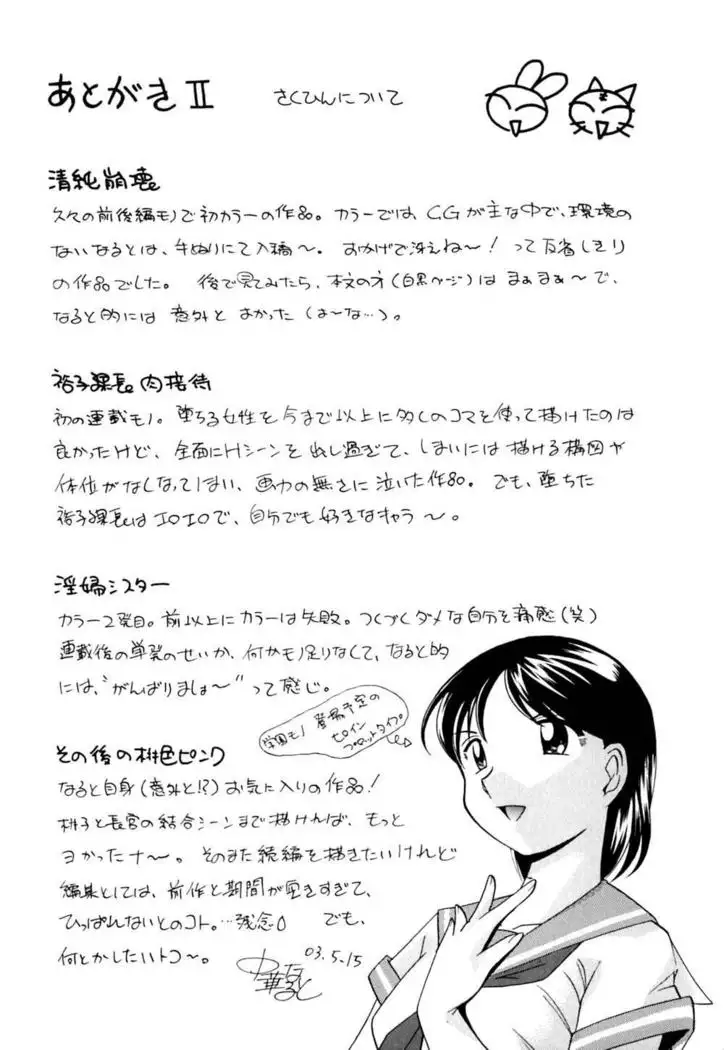 あとがきⅡ さくひんについて
清純崩壊
久々の前後編モノで初カラーの作品。カラーでは、CGが主な中で、環境の
ないなるとは、手ぬりにて入稿〜。おかげで冴えね〜!って反省しきり
の作品でした。後で見てみたら、本文の方(白黒ページ)はまぁまぁ〜で、
なると的には意外とよかった(は〜な…)。
裕子課長肉接待
初の連載モノ。堕ちる女性を今まで以上に多くのコマを使って描けたのは
良かったけど、全面にHシーンを出し過ぎて、しまいには描ける構図や
体位がなくなってしまい、画力の無さに泣いた作品。でも、堕ちた
裕子課長はエロエロで、自分でも好きなキャラ〜。
淫婦シスター
カラー2発目。前以上にカラーは失敗。つくづくダメな自分を痛感(笑)
連載後の単発のせいか、何かモノ足りなくて、なると的
には、“がんばりましょ〜”って感じ。
学園モノ登場予定の
ヒロイン
プロットタイプ
その後の桃色ピンク
なると自身(意外と!?)お気に入りの作品!
桃子と長官の結合シーンまで描ければ、もっと
ヨかったナ〜。そのまた続編を描きたいけれど
編集としては、前作と期間が空きすぎて、
ひっぱれないとのコト。…残念。でも、
何とかしたいトコ〜。
中華なると 03.5.15